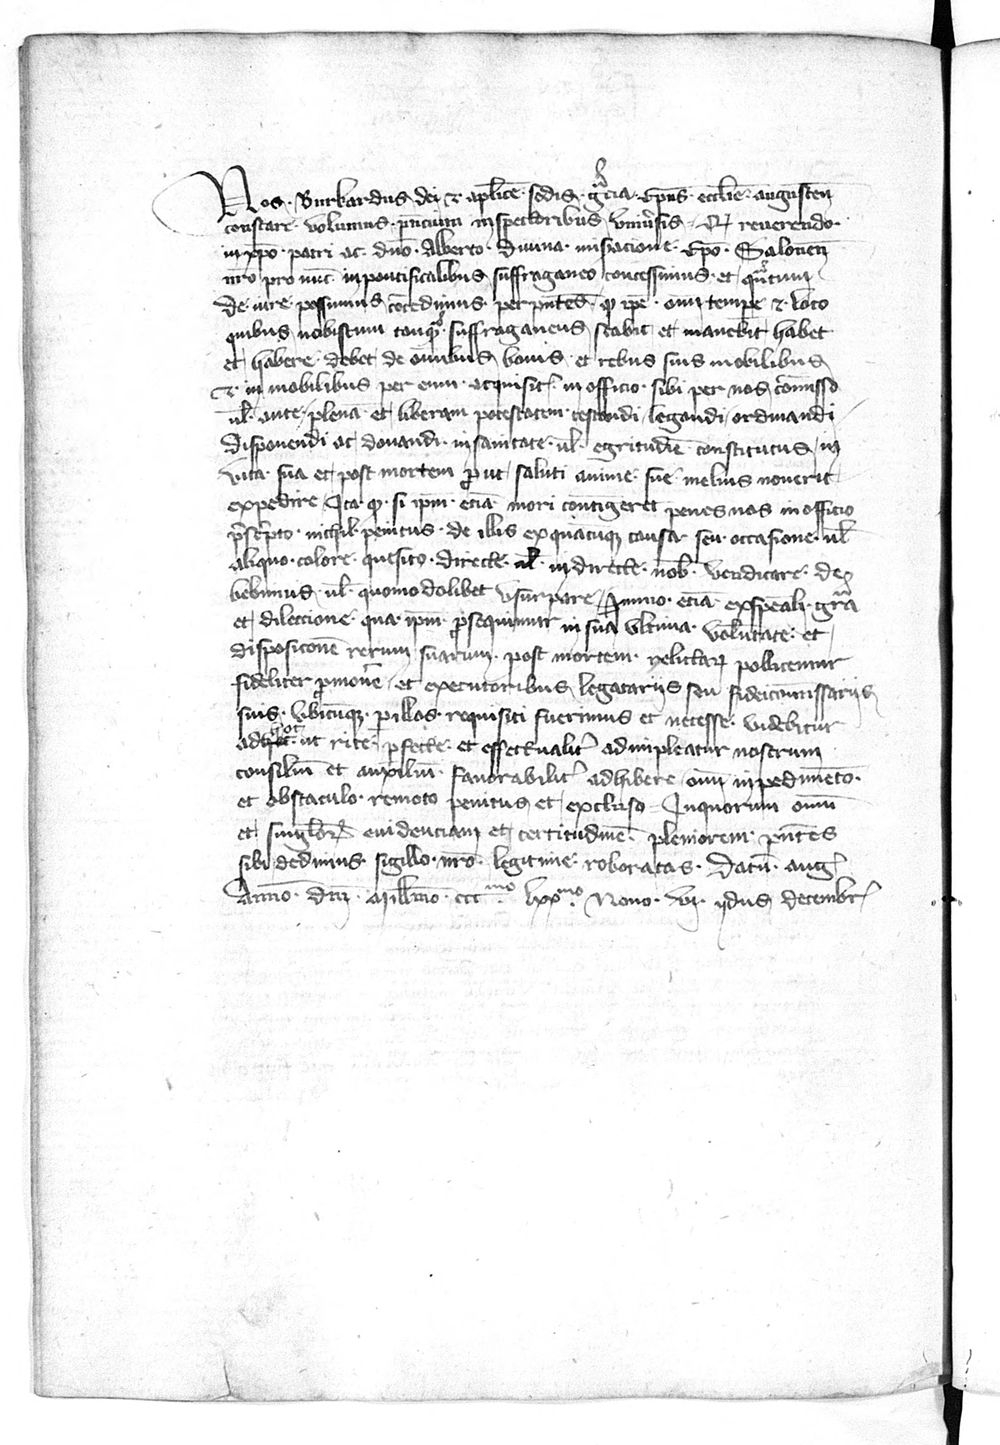 Nos Burkardus dei et aplice sedis gratia Epus ecclie augusten
constare volumus pncium inspectoribus vniusis Q reuerendo
in xpo patri ac dno Alberto Diuina misacione Epo Salonen
nro pro nunc in pontificalibus suffraganeo concessimus et quantum
de iure possumus cocedimus per pntes q ipe omi tempe et loco
quibus nobiscum tamq suffraganeus stabit et manebit habet
et habere debet de omibus bonis et rebus suis mobilibus
et inmobilibus per eum acquisit in officio sibi per nos comisso
ul ante plena et liberam potestatem testandi legandi ordinandi
disponendi ac donandi in sanitate ul egritudie constitutus in
vita sua et post mortem prout saluti anime sue melius nouerit
expedire Ita q si ipm etia mori contigeret penes nos in officio
psepto nichil penitus de illis ex quacuq causa seu occasione ul
aliquo colore quesito directe ul indirecte nob vendicare de
bebimus ul quomodolibet vsurpare Immo etia ex speali gra
et dileccione qua ipm psequimur in sua vltima voluntate et
disposicone rerum suarum post mortem relictar pollicemur
fideliter pmoue et executoribus legatarijs seu fideicomissarijs
suis vbicunq p illos requisiti fuerimus et necesse videbitur
ad hoc ut rite pfecte et effectualit adimpleatur nostrum
consiliu et auxiliu fauorabilit adhibere omi inpedimeto
et obstaculo remoto penitus et excluso In quorum omi
et singlor euidenciam et certitudine pleniorem pntes
sibi dedimus sigillo nro legitime roboratas Datu aug
Anno dni Millmo ccc mo lxx mo Nono vj ydus decembr